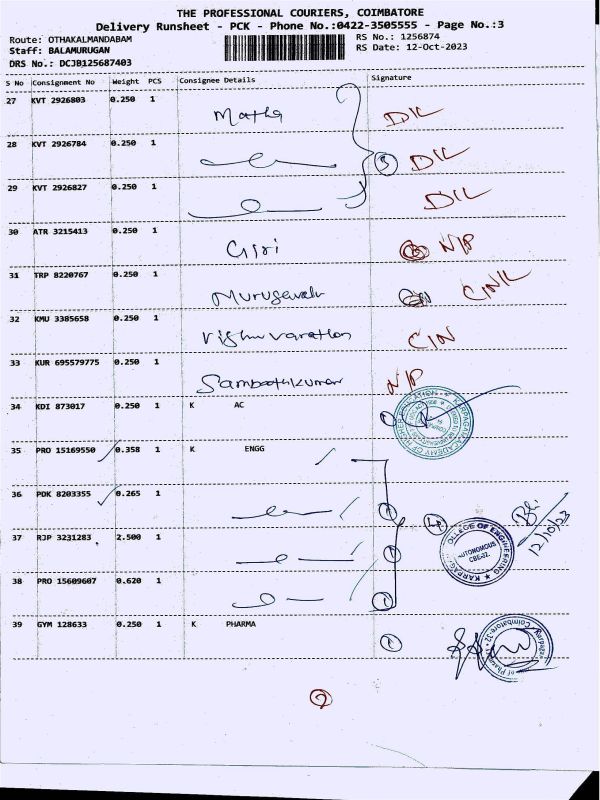 THE PROFESSIONAL COURIERS, COIMBATORE
Delivery Runsheet - PCK - Phone No.:0422-3505555 - Page No.:3
Route: OTHAKALMANDABAM
RS No.: 1256874
Staff: BALAMURUGAN
RS Date: 12-Oct-2023
DRS No.: DCJB125687403
S No Consignment No Weight PCS Consignee Details Signature
27 KVT 2926803 0.250 1 D/L
28 KVT 2926784 0.250 1 3 D/L
29 KVT 2926827 0.250 1 D/L
30 ATR 3215413 0.250 1 Giri N/P
31 TRP 8220767 0.250 1
32 KMU 3385658 0.250 1 C/N
33 KUR 695579775 0.250 1 Sambathkumar N/P
34 KDI 873017 0.250 1 K AC 1
35 PRO 15169550 0.358 1 K ENGG
36 PDK 8203355 0.265 1 1
37 RJP 3231283 2.500 1 1
38 PRO 15609607 0.620 1 1
39 GYM 128633 0.250 1 K PHARMA 1
KARPAGAM ACADEMY OF HIGHER EDUCATION
COLLEGE OF ENGINEERING
AUTONOMOUS
CBE-32.
12/10/23
Coimbatore-32